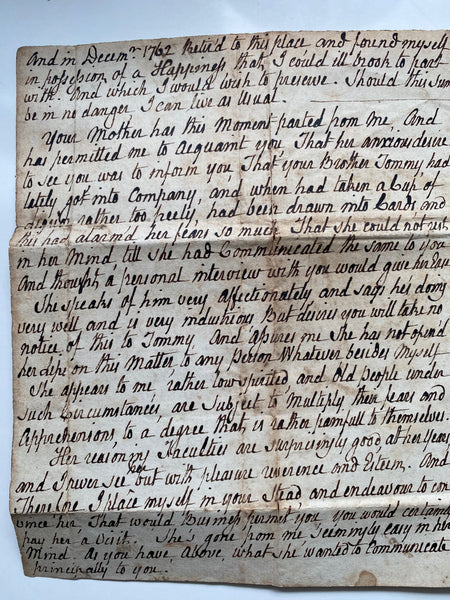 And in Decemr. 1762 Retir'd to this place and found myself
in possession of a Happiness that I could ill brook to part
with. And which I would wish to preserve. Should this Sum
be in no danger I can live as Usual.
Your Mother has this Moment parted from me, And
has permitted me to Acquaint you That her anxious desire
to see you was to inform you That your Brother Tommy, had
lately got into Company, and when had taken a Cup, of
rather too freely, had been drawn into Cards, and
this had alarm'd her fears so much That she could not rest
in her Mind, till she had Communicated the same to you
And thought a personal interview with you would give her Ease
She speaks of him very affectionately and says he's doing
very well and is very industrious But desires you will take no
notice of this to Tommy And assures me She has not open'd
her lips on this Matter to any Person Whatever besides Myself
She appears to me rather low spirited and Old People under
such Circumstances, are Subject to Multiply their fears and
Apprehensions to a degree that is rather painfull to themselves.
Her reasoning faculties are Surprisingly good at her Years
and I never see her but with pleasure reverence and Esteem. And
Therefore I place myself in your Stead, and endeavour to con
vince her, That would Business permit you You would certainly
pay her a Visit. She's gone from me Seemingly easy in her
Mind. As you have, Above, what she wanted to Communicate
principally to you.